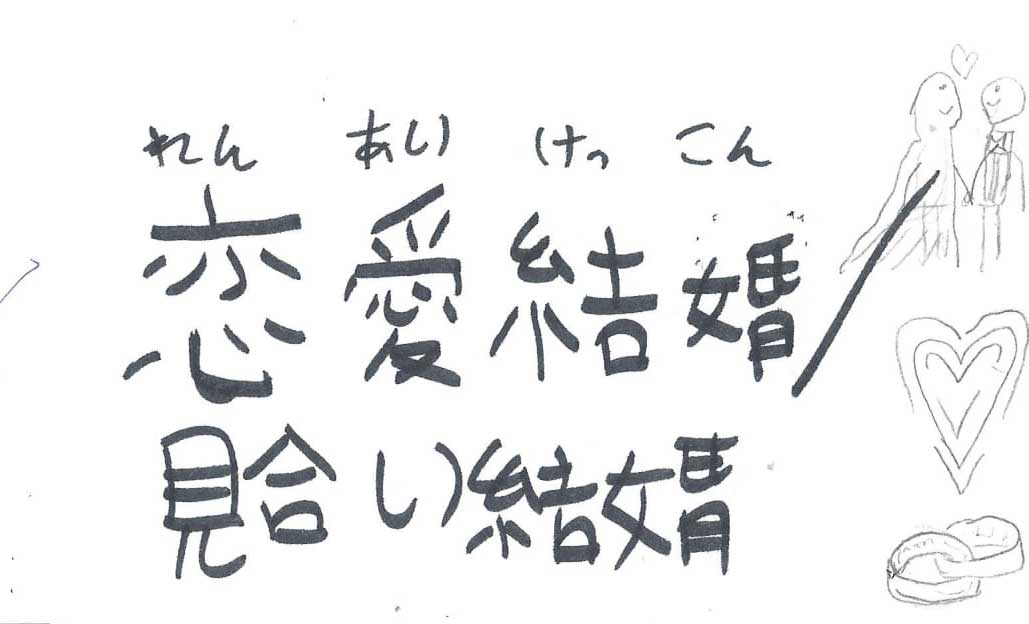 れん あい けっ こん
恋愛結婚/
見合い結婚